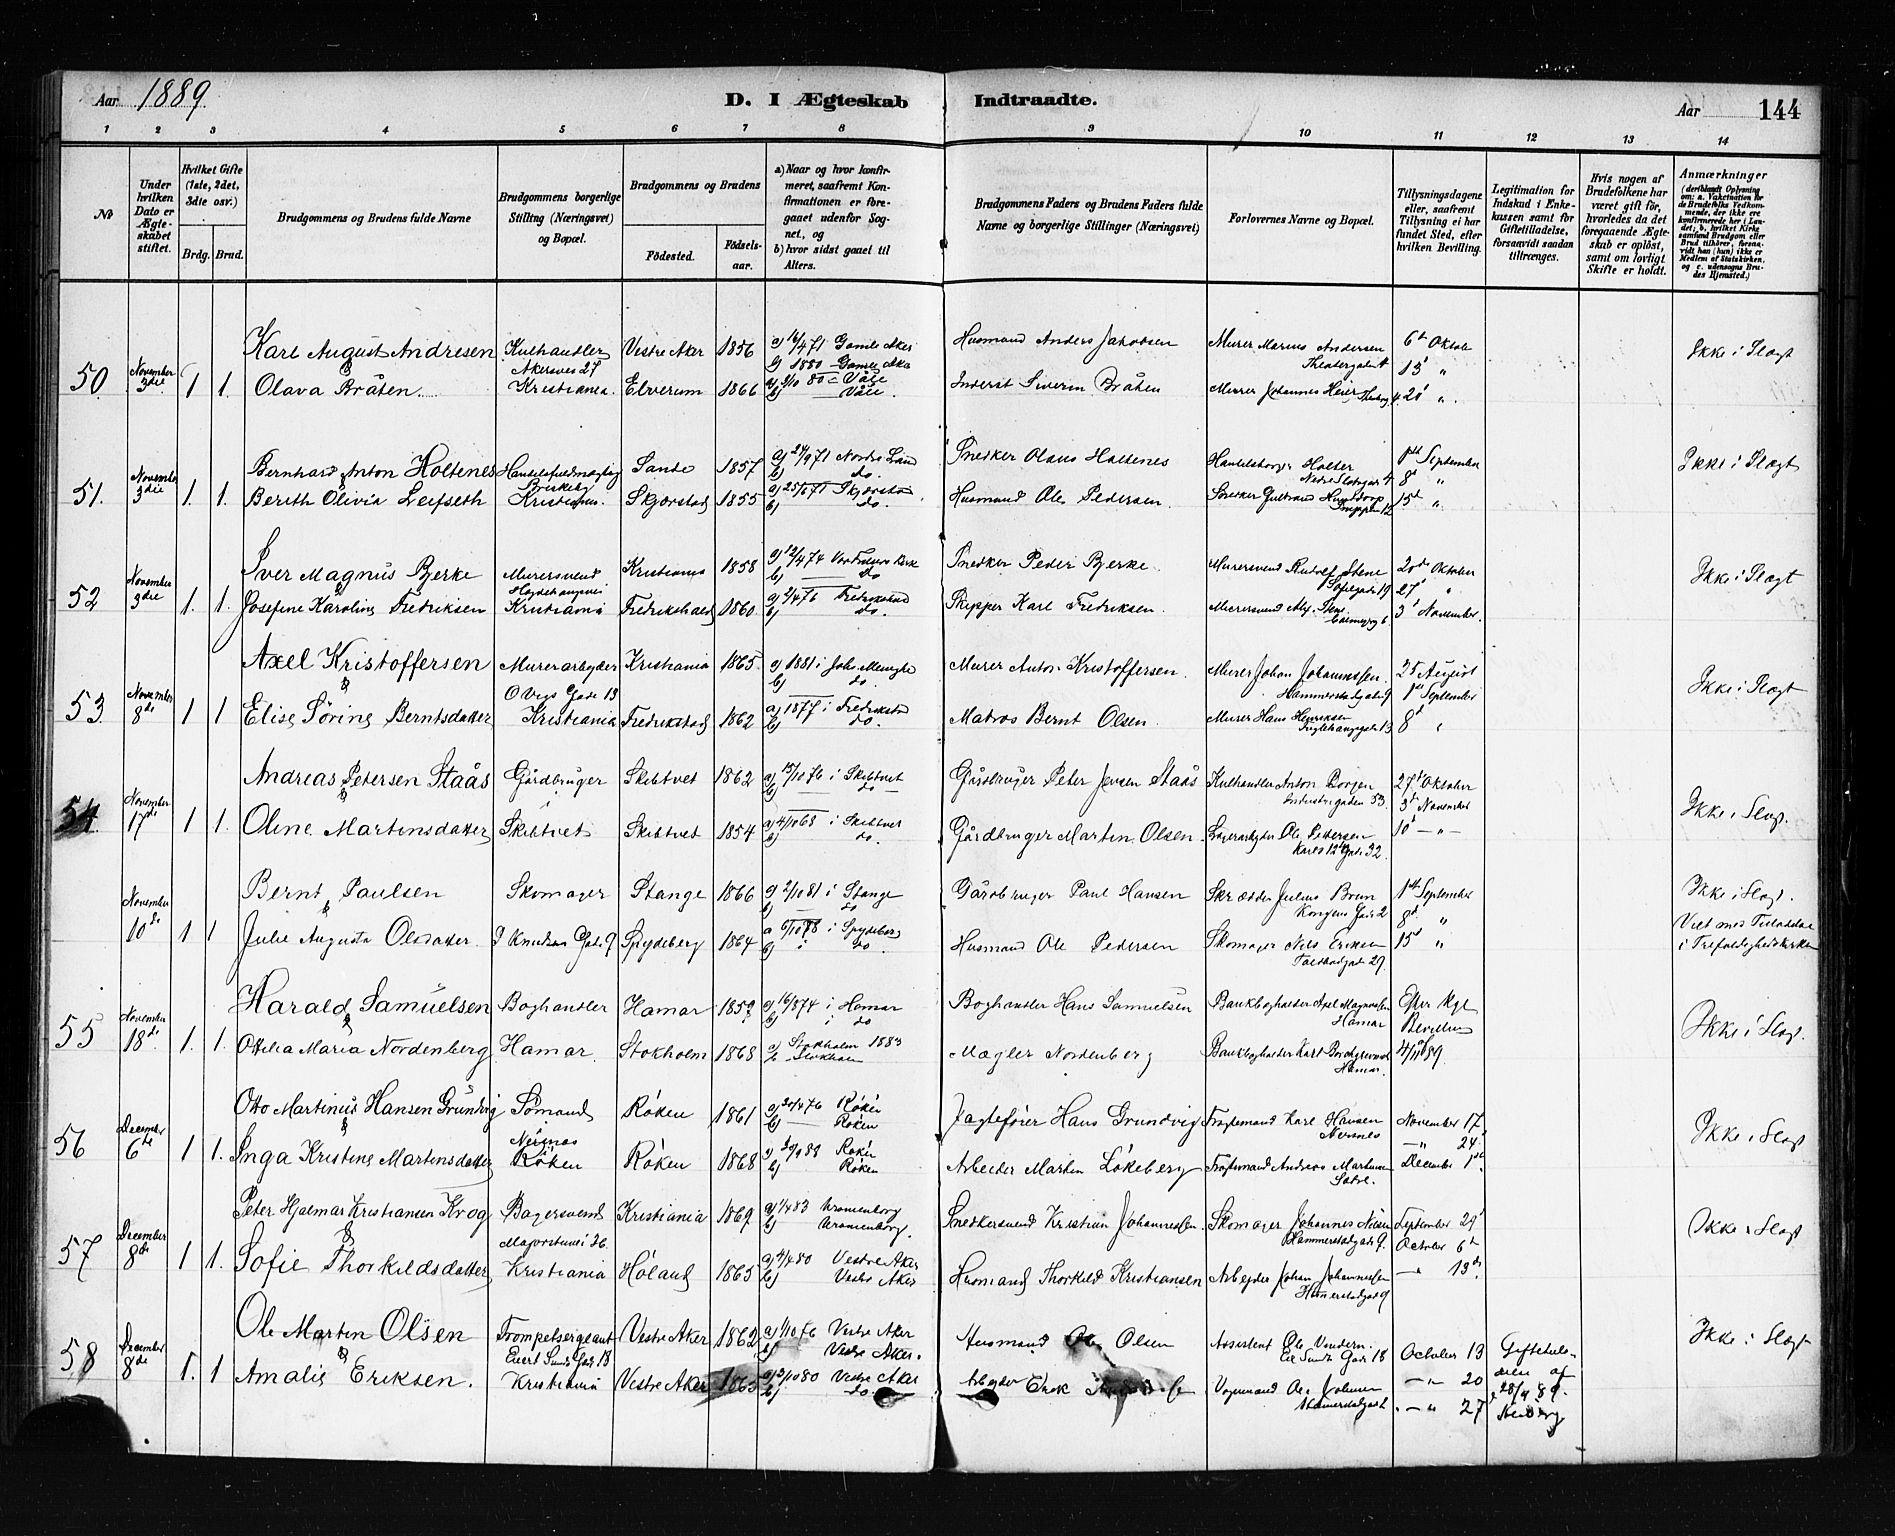 Aar 1889.
D. I Ægteskab Indtraadte.
Aar 144
1 2 3 4 5 6 7 8 9 10 11 12 13 14
No
Under hvilken Dato er Ægteskabet stiftet.
Hvilket Gifte (1ste, 2det, 3die osv.)
Brdg. Brud.
Brudgommens og Brudens fulde Navne
Brudgommens borgerlige Stilling (Næringsvei) og Bopæl.
Brudgommens og Brudens
Födested. Födsels-aar.
a) Naar og hvor konfirmeret, saafremt Konfirmationen er foregaaet udenfor Sognet, og
b) hvor sidst gaaet til Alters.
Brudgommens Faders og Brudens Faders fulde Navne og borgerlige Stillinger (Næringsvei)
Forlovernes Navne og Bopæl.
Tillysningsdagene eller, saafremt Tillysning ei har fundet Sted, efter hvilken Bevilling.
Legitimation for Indskud i Enkekassen samt for Giftetilladelse, forsaavidt saadan tiltrænges.
Hvis nogen af Brudefolkene har været gift för, hvorledes da det foregaaende Ægteskab er oplöst, samt om lovligt Skifte er holdt.
Anmærkninger
50. November 3die 1 1.
Karl August Andresen Kulhandler Vestre Aker 1856 a) 16/4 71 Gamle Aker Husmand Anders Jakobsen Murer Marius Andersen 6te Oktober Ikke i Slægt
& Akersvei 27 b) 1880 Gamle Aker Theatergaden 4 13' "
Olava Bråten. Kristiania. Elverum 1866 Våle Inderst Siverin Bråten Murer Johannes Heier 20' "
51. November 3die 1. 1.
Bernhard Anton Holtenes Handelsfuldmægtig Sande 1857 a) 24/9 71 Nordre Land Snedker Olaus Holtenes Holter 1ste September Ikke i Slægt
b) do. 8de "
Berith Olivia Leifseth Kristiania. Skjerstad 1855 Skjerstad Husmand Ole Pedersen. Snedker 15de "
b) do.
52 November 3die 1. 1.
Iver Magnus Bjerke Murersvend Kristiania 1858 a) 12/4 74 Vor Frelsers Kirke Snedker Peder Bjerke Murersvend Rudolf Stene 20de Oktober Ikke i Slægt
& b) do Sofiegade 19 27' "
Josefine Karoline Fredriksen Kristiania Fredrikshald 1860 Skipper Karl Fredriksen. Murersvend 3' November.
b) do.
53 November 8de 1 1
Axel Kristoffersen Murerarbejder Kristiania 1865. a) 1881 i Johs Menighed Murer Anton Kristoffersen. Murer Johan Johannessen. 25 August Ikke i Slægt
& Gade 13 b) do. Hammerstadgade 9 1ste September
Elise Sørine Berntsdatter Kristiania Fredrikstad 1862 a) 1877 i Fredrikstad Matros Bernt Olsen. Murer Hans Henriksen 8' "
b) do.
54. November 17de 1 1.
Andreas Petersen Staås Gårdbruger Skibtvet 1862 a) 15/10 76 i Skibtvet Gårdbruger Peter Jensen Staås Kulhandler Anton Borgen 27' Oktober Ikke i Slægt.
& b) do Industrigaden 53. 3de November
Oline Martinsdatter Skibtvet Skibtvet 1854 a) 4/10 68 i Skibtvet Gårdbruger Martin Olsen. Lagerarbejder Ole Pettersen 10' — " —
b) do. Karls 12tes Gade 32.
November 10de 1 1
Bernt Paulsen Skomager Stange 1866 a) 2/10 81 i Stange Gårdbruger Paul Hansen Skrædder Julius Brun 1ste September Ikke i Slægt.
& b) do Kongens Gade 2 8de "
Julie Augusta Olsdatter. Gade 9 Spydeberg 1864 a) 6/10 78 i Spydeberg Husmand Ole Pedersen Skomager Nils Eriksen 15' " Viet med Tilladelse i Trefoldighedskirken
b) do.
55 November 18de. 1. 1.
Harald Samuelsen Boghandler Hamar 1859 a) 16/8 74 i Hamar Boghandler Hans Samuelsen Bankbogholder Axel Magnussen Efter kgl Ikke i Slægt.
& b) i do Hamar Bevilling
Ottilia Maria Nordenberg Hamar. Stokholm 1868 a) Stockholm 1883 Mægler Nordenberg Bankbogholder Karl Borchgrevink 4/11 89.
b Stockholm Hamar.
56 December 6te 1 1.
Otto Martinius Hansen Grundvig Sømand Røken 1861 a) 30/4 76 Røken Jagtefører Hans Grundvig Fragtemand Karl Hansen November 17' Ikke i Slægt
& Nersnes b) Røken Nersnes — " 24'
Inga Kristine Martinsdatter Røken Røken 1868 Røken Arbeider Martin Løkeberg Fragtemand Andreas Martinsen December 1ste
b) Røken Sætre.
57 December 8de 1 1.
Peter Hjalmar Kristiansen Krog Bagersvend Kristiania 1869 a) 1/4 83 Uranienborg Snedkersvend Kristian Johannessen. Skomager Johannes Nilsen September 29' Ikke i Slægt
& Majorstuvei 26. b) Uranienborg. Hammerstadgade 9. October 6te
Sofie Thorkildsdatter Kristiania Høland 1865 a) 4/4 80 Vestre Aker Husmand Thorkild Kristiansen Arbejder Johan Johannessen — " 13de.
b) Vestre Aker
58 December 8de 1. 1
Ole Martin Olsen Trompetsergeant Vestre Aker 1862 a) 1/10 76 Vestre Aker Husmand Ole Olsen Assistent Ole Vindern. October 13 Giftetilladelse af 28/9 89. Ikke i Slægt
& Eilert Sundts Gade 18 b) Vestre Aker. Eil Sundts Gade 18 — " 20
Amalie Eriksen. Kristiania Vestre Aker 1865 a) 3/10 80 Vestre Aker Arbejder Erik Vognmand Ole Johnsen — " 27'
b) do